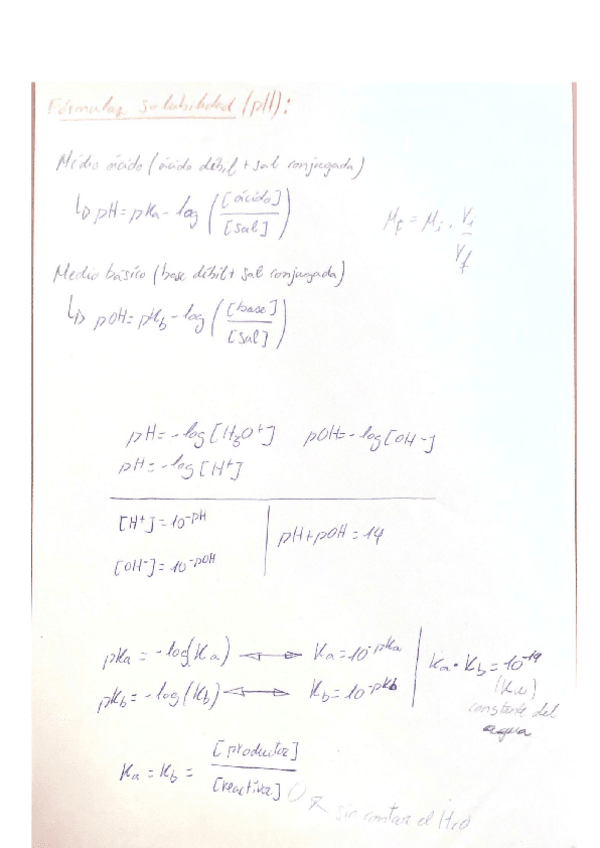 Fórmulas solubilidad (pH):
Medio ácido (ácido débil + sal conjugada)
↳ pH = pKa - log ([ácido] / [sal])
M_f = M_i · V_i / V_f
Medio básico (base débil + sal conjugada)
↳ pOH = pK_b - log ([base] / [sal])
pH = -log [H₃O⁺] pOH = -log [OH⁻]
pH = -log [H⁺]
[H⁺] = 10^-pH
pH + pOH = 14
[OH⁻] = 10^-pOH
pKa = -log(Ka) ↔ Ka = 10^-pKa
Ka · K_b = 10^-14
pK_b = -log(K_b) ↔ K_b = 10^-pKb
(Kw)
constante del
agua
Ka = K_b = [productos] / [reactivos]
sin contar el H₂O